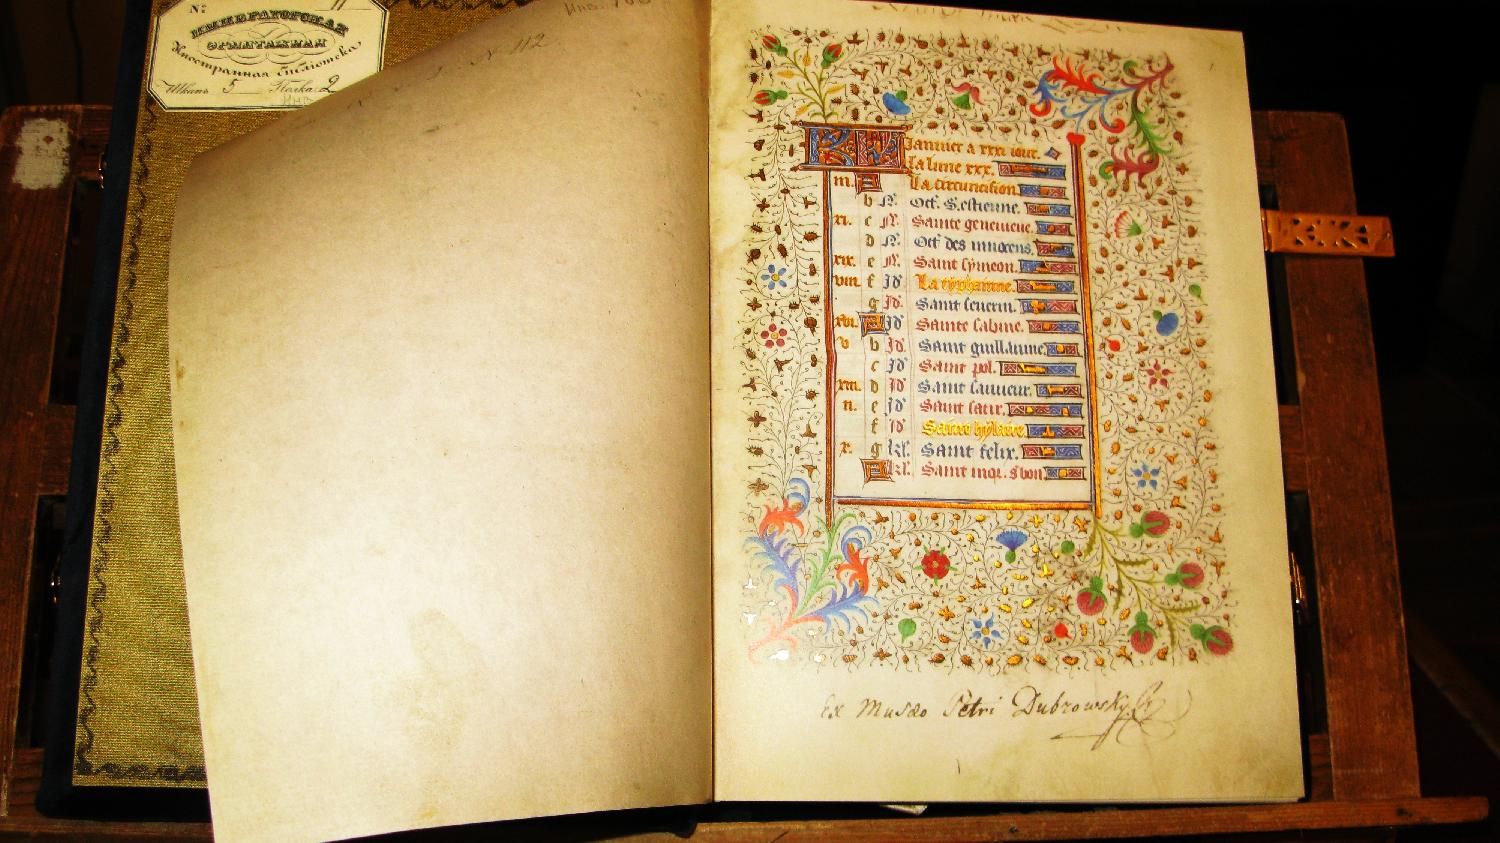 №:
ИМПЕРАТОРСКАЯ
ЭРМИТАЖНАЯ
Иностранная библіотека
Шкапъ 5 Полка 2
N 112
KL Januier a xxxi iour.
La lune xxx.
iii. A La circuncision.
b N. Oct. S. estienne.
xi. c N. Sainte geneuieue.
d N. Oct. des innocens.
xix. e N. Saint symeon.
viii. f Id La typhanne.
g Id. Saint seuerin.
xvi. A Id Sainte sabine.
v b Id. Saint guillaume.
c Id Saint pol.
xiii. d Id Saint sauueur.
ii. e Id Saint satir.
f Id Sainte hylaire.
x. g kl. Saint felix.
A kl. Saint mor. s. bon.
Ex Musæo Petri Dubrowsky